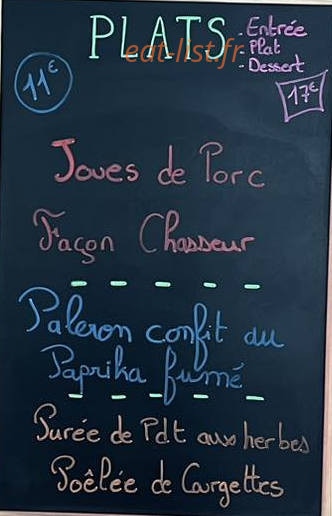 PLATS
- Entrée
- Plat
- Dessert
eat-list.fr
11€
17€
Joues de Porc
Façon Chasseur
Paleron confit au
Paprika fumé
Purée de Pdt aux herbes
Poêlée de Courgettes